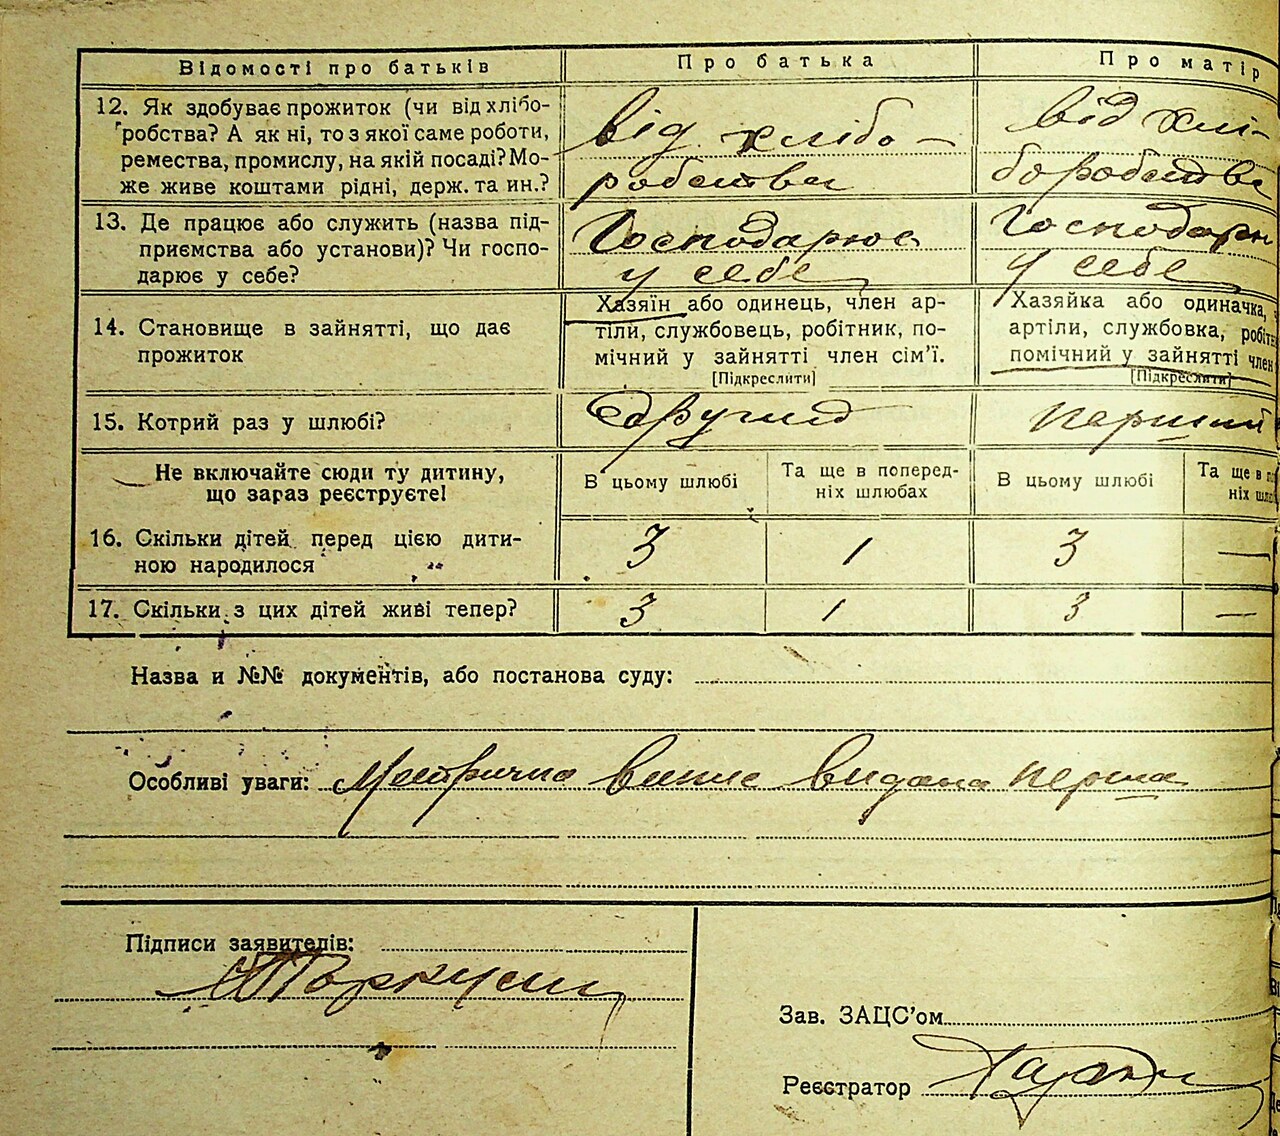 Відомості про батьків
Про батька
Про матір
12. Як здобуває прожиток (чи від хлібо-
робства? А як ні, то з якої саме роботи,
ремества, промислу, на якій посаді? Мо-
же живе коштами рідні, держ. та ин.?
від хлібо-
робства
від хлі-
боробства
13. Де працює або служить (назва під-
приємства або установи)? Чи госпо-
дарює у себе?
Господарює
у себе
Господарює
у себе
14. Становище в зайнятті, що дає
прожиток
Хазяїн або одинець, член ар-
тілі, службовець, робітник, по-
мічний у зайнятті член сім’ї.
[Підкреслити]
Хазяйка або одиначка,
артіли, службовка, робіт
помічний у зайнятті член
[Підкреслити]
15. Котрий раз у шлюбі?
другий
перший
Не включайте сюди ту дитину,
що зараз реєструєте!
В цьому шлюбі
Та ще в поперед-
ніх шлюбах
В цьому шлюбі
Та ще в по
ніх шлю
16. Скільки дітей перед цією дити-
ною народилося
3
1
3
—
17. Скільки з цих дітей живі тепер?
3
1
3
—
Назва и №№ документів, або постанова суду:
Особливі уваги: Метрична випис видана перша
Підписи заявителів:
Зав. ЗАЦС’ом
Реєстратор